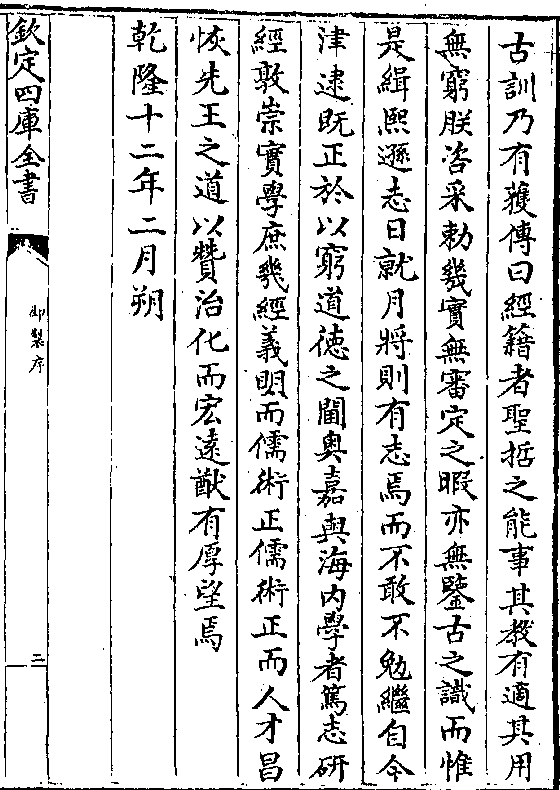 古訓乃有獲傳曰經籍者聖哲之能事其教有適其用
無窮朕咨采勅幾實無審定之暇亦無鑒古之識而惟
是緝熙遜志日就月將則有志焉而不敢不勉繼自今
津逮既正於以窮道徳之閫奥嘉與海内學者篤志研
經敦崇實學庶幾經義眀而儒術正儒術正而人才昌
恢先王之道以贊治化而宏逺猷有厚望焉
乾隆十二年二月朔
欽定四庫全書
御製序
二